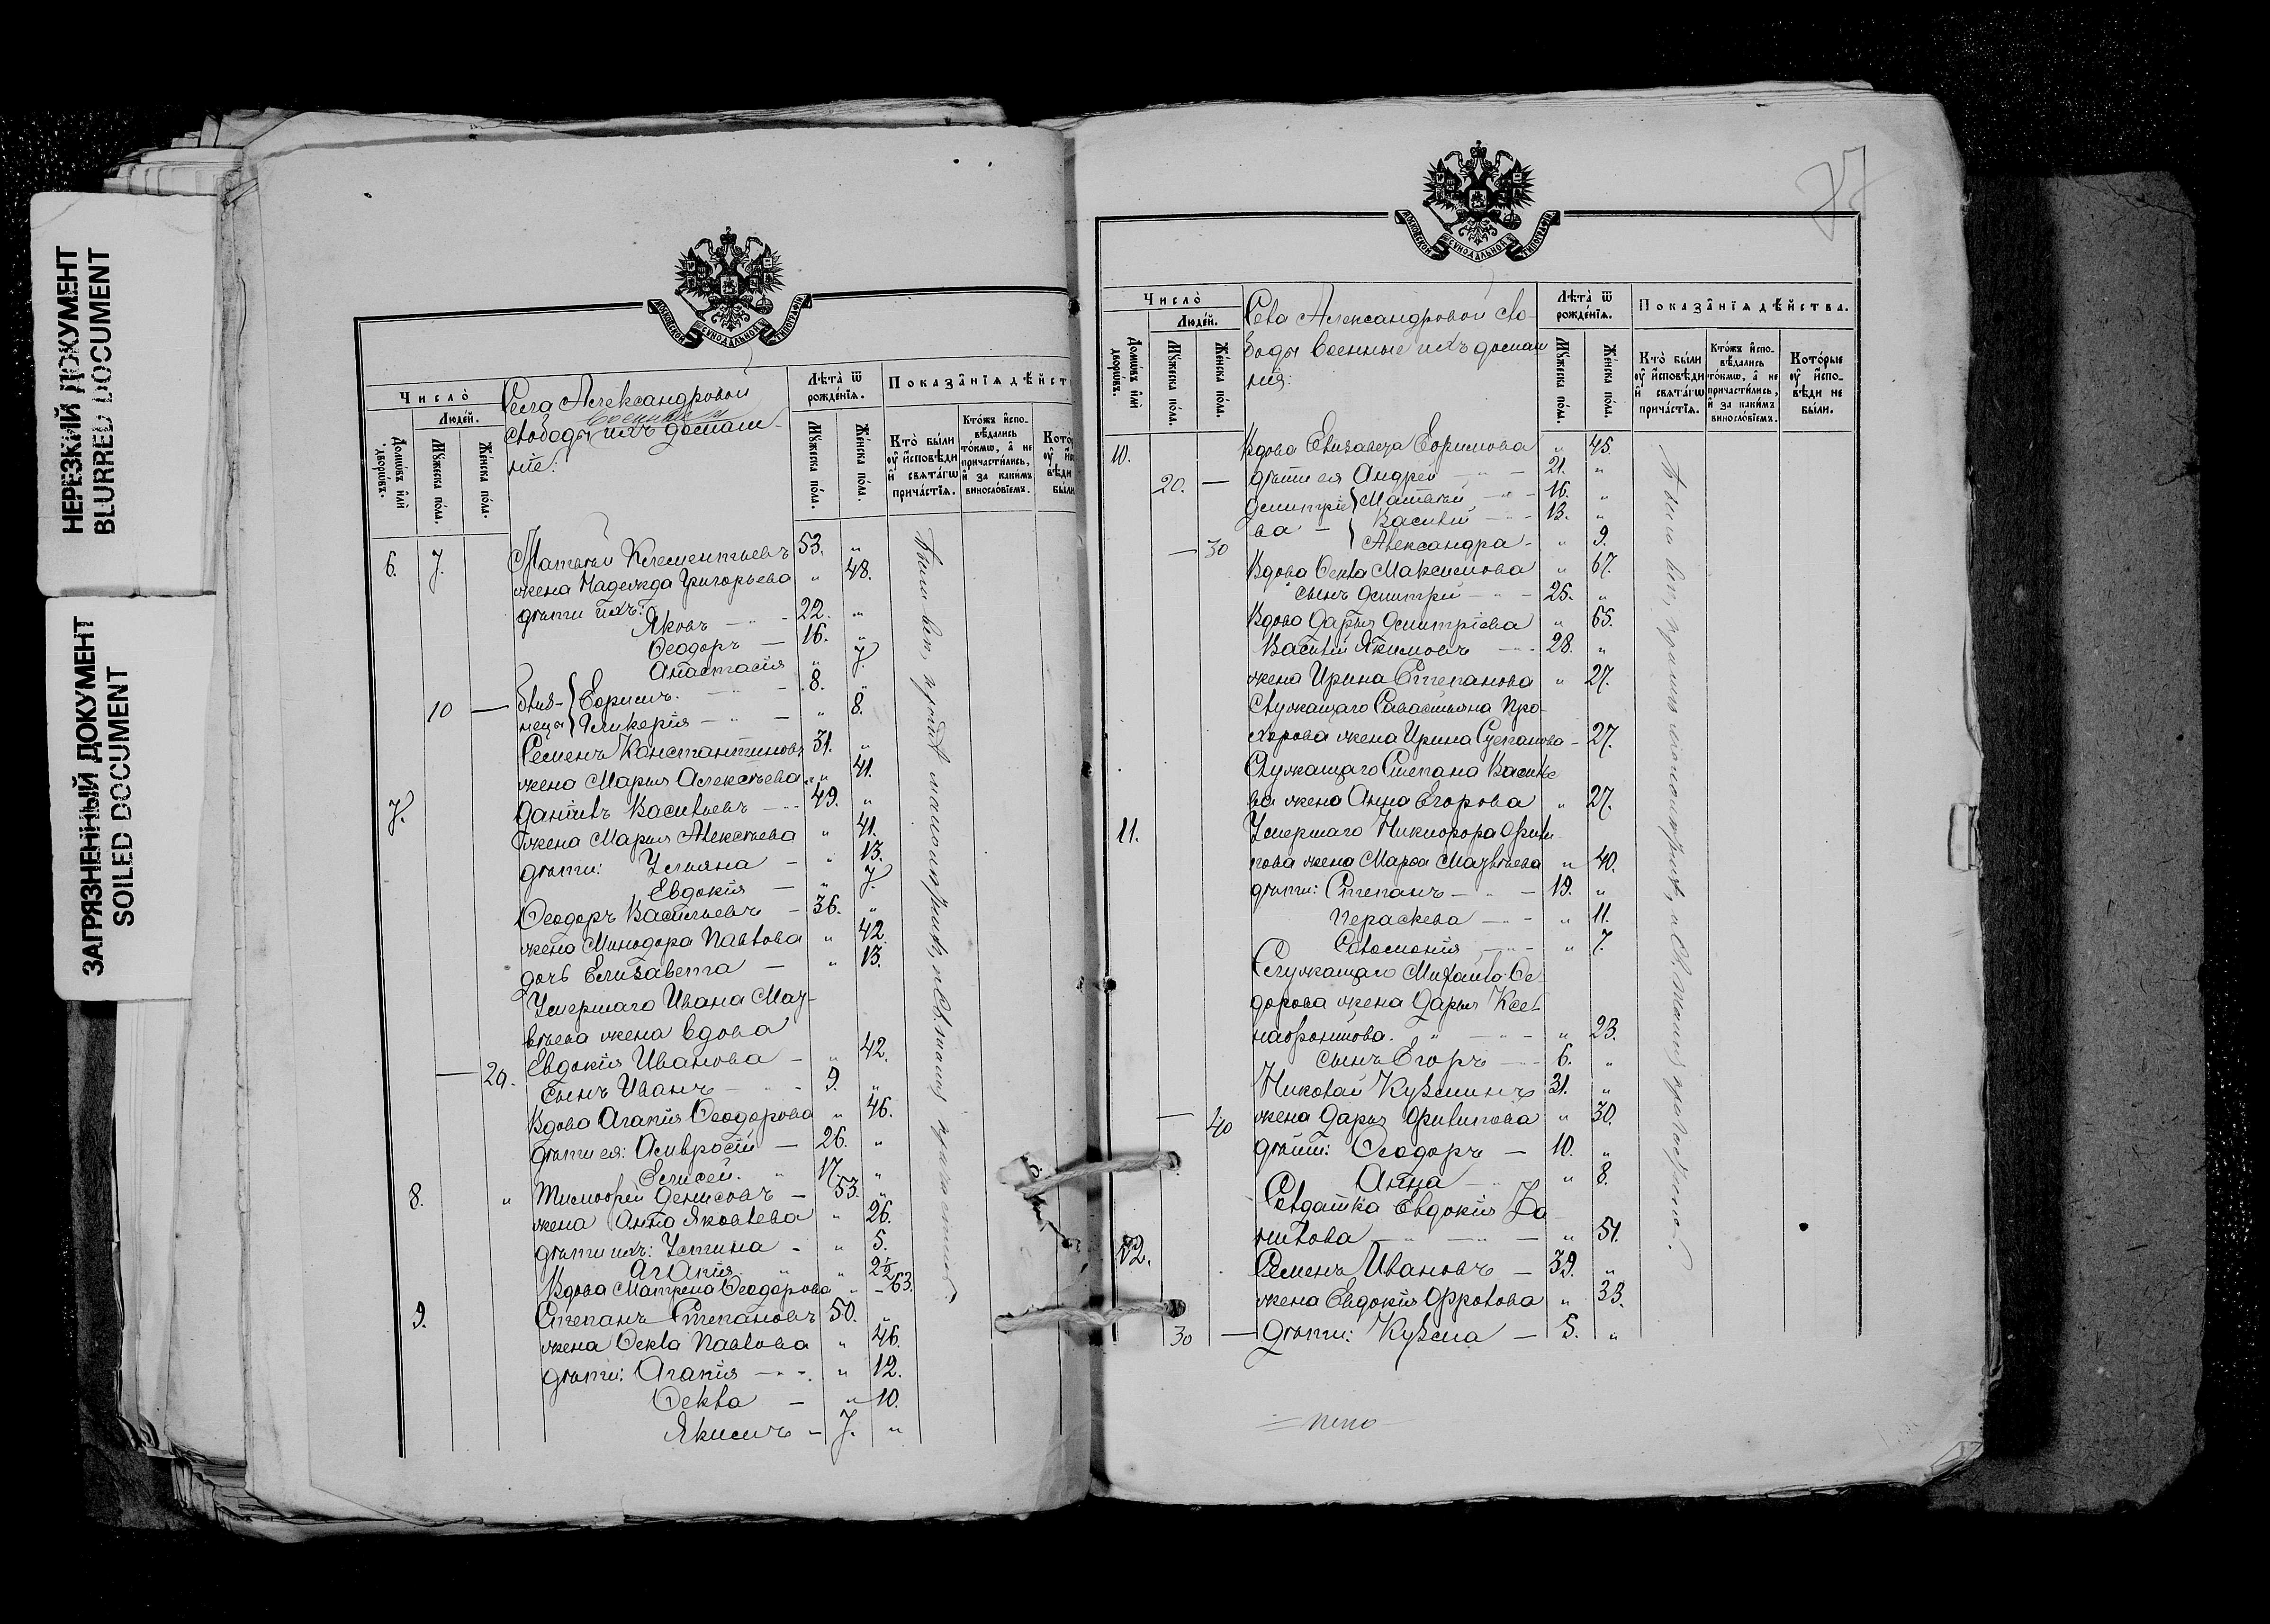 НЕРЕЗКИЙ ДОКУМЕНТ
BLURRED DOCUMENT
ЗАГРЯЗНЕННЫЙ ДОКУМЕНТ
SOILED DOCUMENT
МОСКОВСКОЙ СѴНОДАЛЬНОЙ ТИПОГРАФІИ
Число̀
Людей.
Домѡвъ и҆лѝ дворѡвъ.
Мꙋжеска пола.
Женска пола.
Села Александровой
военные и
слободы ихъ домаш-
ніе:
Лѣта̀ ѿ рожденїѧ.
Мꙋжеска пола.
Женска пола.
Показанїѧ дѣйст
Кто̀ были ᲂу҆ и҆сповѣди и҆ свѧтагѡ причастїѧ.
Ктожъ и҆спо-вѣдались токмѡ, а҆ не причастились, и҆ за какимъ винословїемъ.
6. 7. Матвѣй Клементьевъ 53. „
жена Надежда Григорьева „ 48.
дѣти ихъ:
Яковъ — „ - 22. „
Ѳеодоръ — 16. „
Анастасія „ 7
Ефримъ. — „ - 8. „
10 — Гликерія — „ — „ 8.
Семенъ Константиновъ 31. „
жена Марья Алексѣева „ 41.
7. Данiилъ Васильевъ — 49. „
жена Марья Алексѣева „ 41.
дѣти: Ульяна — „ 13.
Евдокія — „ 7.
Ѳеодоръ Васильевъ — 36. „
жена Минодора Павлова „ 42.
дочь Елизавета — „ 13.
Умершаго Ивана Мат-
вѣева жена вдова
Евдокія Иванова — „ 42.
— 20. сынъ Иванъ — 9. „
Вдова Агапія Ѳеодорова „ 46.
дѣти ея: Амвросій — 26. „
Елисей. „ 17 „
8. „ Тимофей Денисовъ — 53. „
жена Анна Яковлева „ 26.
дѣти ихъ: Устина - „ 5.
Агапія „ „ 2½
Вдова Матрена Ѳеодорова „ — 63.
9. Степанъ Степановъ 50. „
жена Ѳекла Павлова „ 46.
дѣти: Агапія — „ 12.
Ѳекла — „ 10.
Якимъ — 7. „
МОСКОВСКОЙ СѴНОДАЛЬНОЙ ТИПОГРАФІИ
Число̀
Людей.
Домѡвъ и҆лѝ дворѡвъ.
Мꙋжеска пола.
Женска пола.
Села Александровой сло-
боды военные ихъ домаш
нія:
Лѣта̀ ѿ рожденїѧ.
Мꙋжеска пола.
Женска пола.
Показанїѧ дѣйства.
Кто̀ были ᲂу҆ и҆сповѣди и҆ свѧтагѡ причастїѧ.
Ктожъ и҆спо-вѣдались токмѡ, а҆ не причастились, и҆ за какимъ винословїемъ.
Которые ᲂу҆ и҆спо-вѣди не были.
10. Вдова Елизавета Ефимова „ 45.
20. — дѣти ея Андрей — 21. „
Димитріе Матвѣй — „ - 16. „
ва — Василій — 13. „
— 30 Александра - „ 9.
Вдова Ѳекла Максимова „ 67.
сынъ Димитрій — „ — 25. „
Вдова Дарья Димитріева „ 65.
Василій Якимовъ — 28. „
жена Ирина Степанова „ 27.
Служащаго Савастьяна Про-
хорова жена Ирина Степанова - 27.
Служащаго Степана Василье
ва жена Анна Егорова „ 27.
11. Умершаго Никифора Фили
пова жена Марфа Матвѣева „ 40.
дѣти: Степанъ — „ — 19. „
Параскева — „ 11.
Соломонія — „ 7.
Служащаго Михаила Ѳе
дорова жена Дарья Ксе
нафонтова. „ — „ 23.
сынъ Егоръ — 6. „
Николай Кузминъ 31. „
— 40 жена Дарья Филипова „ 30.
дѣти: Ѳеодоръ — 10. „
Анна — „ 8.
Солдатка Евдокія Да
нилова — „ — „ 51.
12. Семенъ Ивановъ — 39. „
жена Евдокія Фролова „ 33.
30 — дѣти: Кузма — 5. „